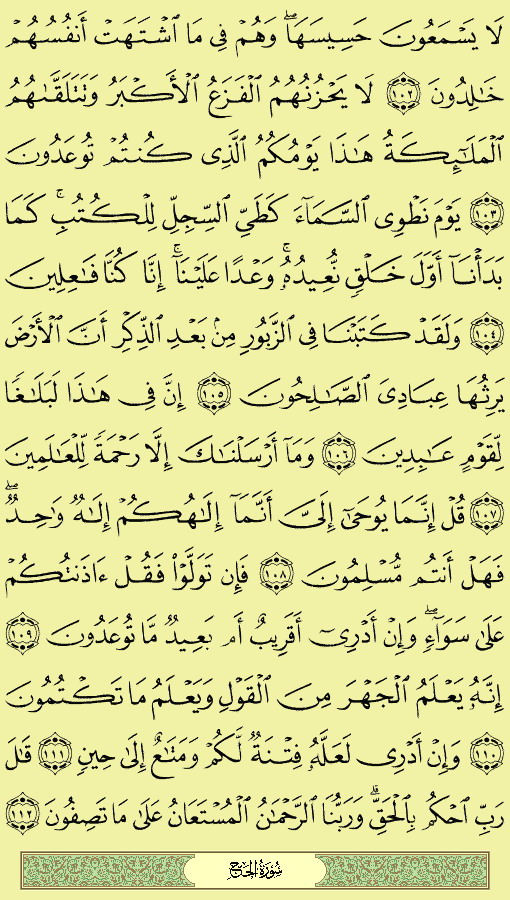 لَا يَسْمَعُونَ حَسِيسَهَا ۖ وَهُمْ فِى مَا ٱشْتَهَتْ أَنفُسُهُمْ
خَـٰلِدُونَ ١٠٢ لَا يَحْزُنُهُمُ ٱلْفَزَعُ ٱلْأَكْبَرُ وَتَتَلَقَّىٰهُمُ
ٱلْمَلَـٰٓئِكَةُ هَـٰذَا يَوْمُكُمُ ٱلَّذِى كُنتُمْ تُوعَدُونَ
١٠٣ يَوْمَ نَطْوِى ٱلسَّمَآءَ كَطَىِّ ٱلسِّجِلِّ لِلْكُتُبِ ۚ كَمَا
بَدَأْنَآ أَوَّلَ خَلْقٍ نُّعِيدُهُۥ ۚ وَعْدًا عَلَيْنَآ ۚ إِنَّا كُنَّا فَـٰعِلِينَ
١٠٤ وَلَقَدْ كَتَبْنَا فِى ٱلزَّبُورِ مِنۢ بَعْدِ ٱلذِّكْرِ أَنَّ ٱلْأَرْضَ
يَرِثُهَا عِبَادِىَ ٱلصَّـٰلِحُونَ ١٠٥ إِنَّ فِى هَـٰذَا لَبَلَـٰغًا
لِّقَوْمٍ عَـٰبِدِينَ ١٠٦ وَمَآ أَرْسَلْنَـٰكَ إِلَّا رَحْمَةً لِّلْعَـٰلَمِينَ
١٠٧ قُلْ إِنَّمَا يُوحَىٰٓ إِلَىَّ أَنَّمَآ إِلَـٰهُكُمْ إِلَـٰهٌ وَٰحِدٌ ۖ
فَهَلْ أَنتُم مُّسْلِمُونَ ١٠٨ فَإِن تَوَلَّوْا۟ فَقُلْ ءَاذَنتُكُمْ
عَلَىٰ سَوَآءٍ ۖ وَإِنْ أَدْرِىٓ أَقَرِيبٌ أَم بَعِيدٌ مَّا تُوعَدُونَ ١٠٩
إِنَّهُۥ يَعْلَمُ ٱلْجَهْرَ مِنَ ٱلْقَوْلِ وَيَعْلَمُ مَا تَكْتُمُونَ
١١٠ وَإِنْ أَدْرِى لَعَلَّهُۥ فِتْنَةٌ لَّكُمْ وَمَتَـٰعٌ إِلَىٰ حِينٍ ١١١ قَـٰلَ
رَبِّ ٱحْكُم بِٱلْحَقِّ ۗ وَرَبُّنَا ٱلرَّحْمَـٰنُ ٱلْمُسْتَعَانُ عَلَىٰ مَا تَصِفُونَ ١١٢
سُورَةُ الحَجِّ